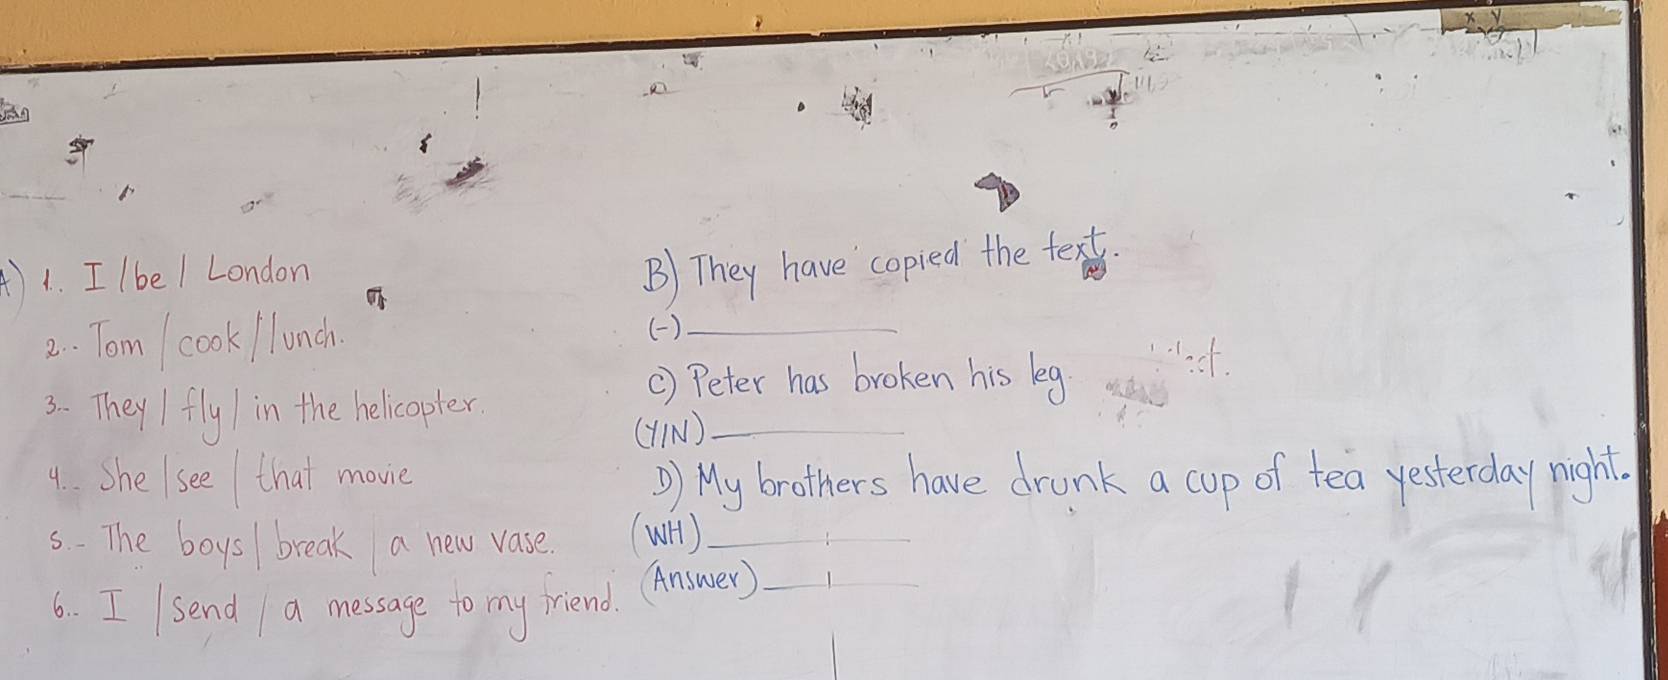 A) 1.. I / be / London
2.. Tom / cook / lunch.
3.. They / fly / in the helicopter.
4.. She / see / that movie
5.- The boys / break / a new vase.
6.. I / send / a message to my friend.
B) They have copied the text.
(-) ________
C) Peter has broken his leg.
(Y/N) ________
D) My brothers have drunk a cup of tea yesterday night.
(WH) ________
(Answer) ________